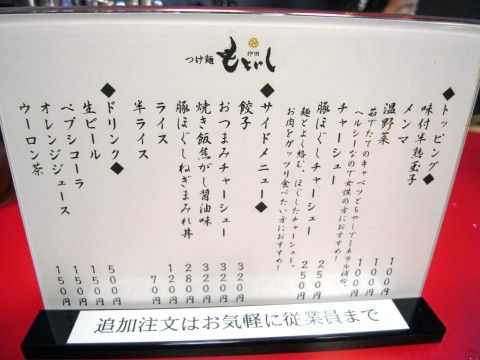 つけ麺
神田
もといし
◆トッピング◆
味付半熟玉子 100円
メンマ 100円
温野菜 100円
茹でたてのキャベツともやしでミネラル補給。
ヘルシーなので女性の方におすすめ！
チャーシュー 250円
豚ほぐしチャーシュー 250円
麺とよく絡む、ほぐしたチャーシュー。
お肉をガッツリ食べたい方におすすめ！
◆サイドメニュー◆
餃子 320円
おつまみチャーシュー 320円
焼き飯焦がし醤油味 320円
豚ほぐしねぎまみれ丼 280円
ライス 120円
半ライス 70円
◆ドリンク◆
生ビール 500円
ペプシコーラ 150円
オレンジジュース 150円
ウーロン茶 150円
追加注文はお気軽に従業員まで